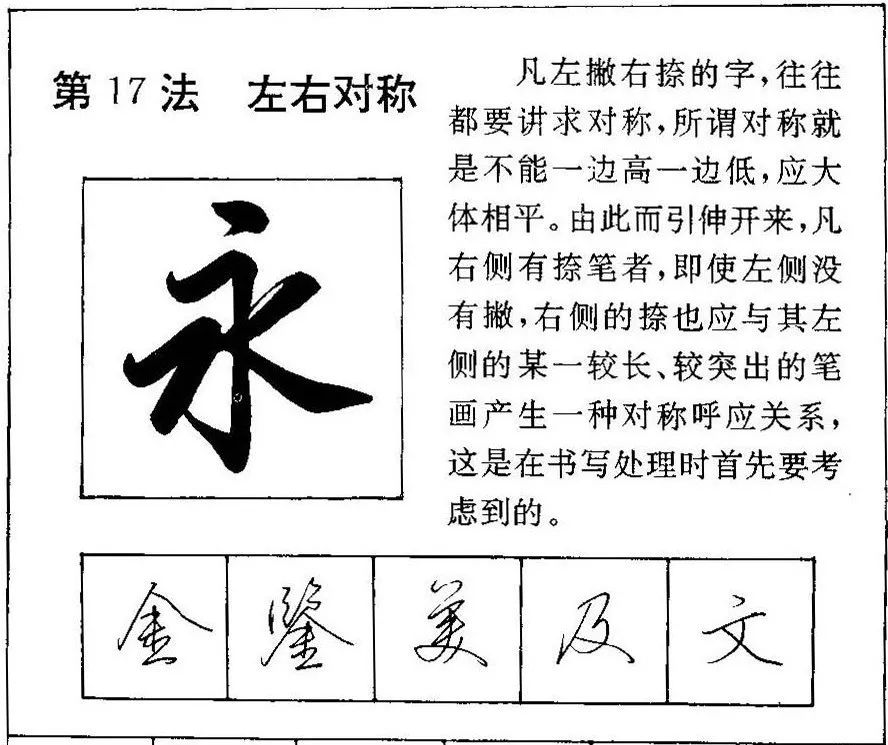 第17法 左右对称
凡左撇右捺的字，往往
都要讲求对称，所谓对称就
是不能一边高一边低，应大
体相平。由此而引伸开来，凡
右侧有捺笔者，即使左侧没
有撇，右侧的捺也应与其左
侧的某一较长、较突出的笔
画产生一种对称呼应关系，
这是在书写处理时首先要考
虑到的。
永
金 鑒 美 及 文